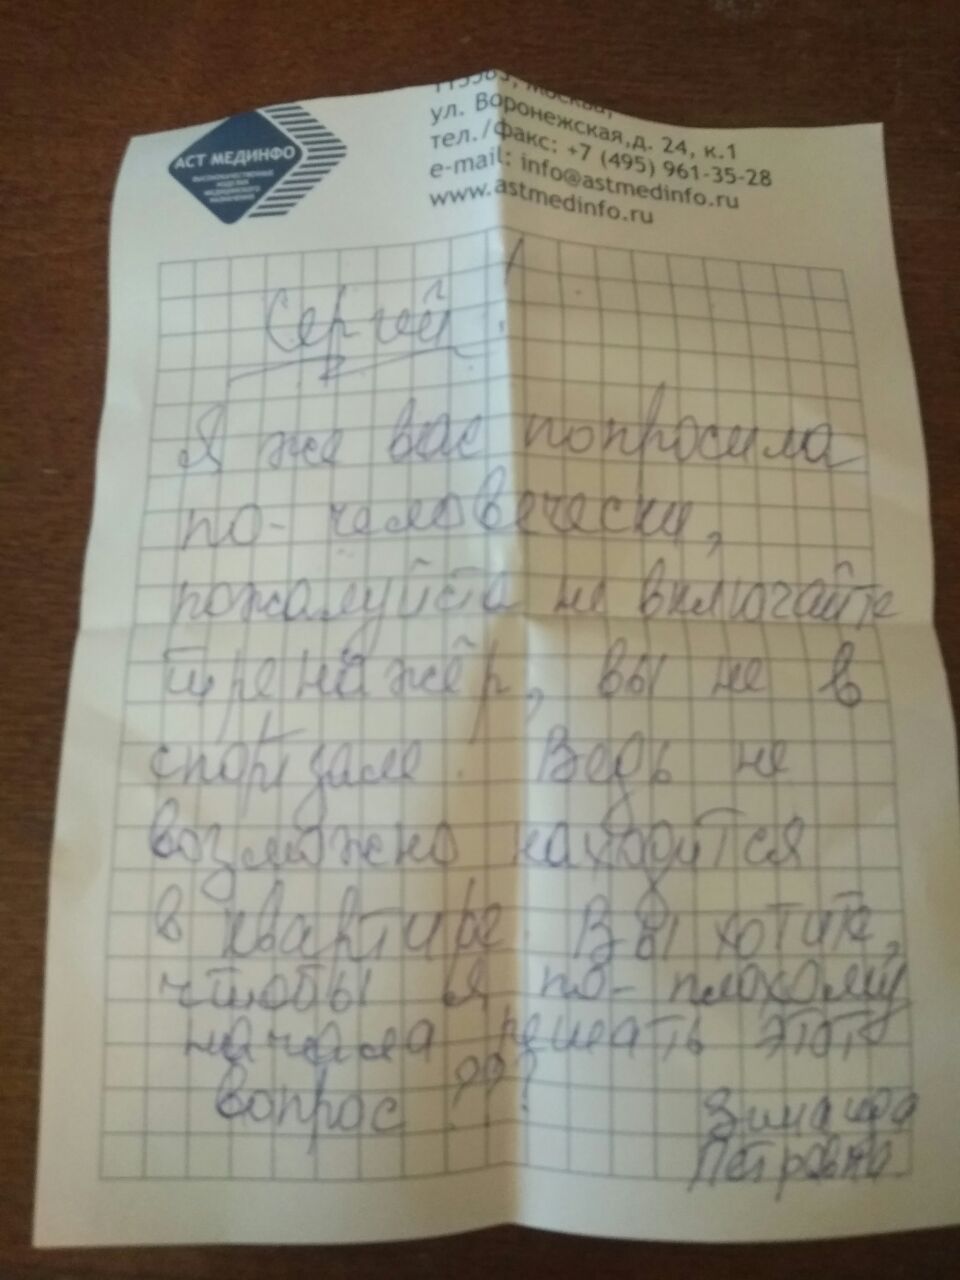 115583, Москва,
ул. Воронежская,д. 24, к.1
тел./факс: +7 (495) 961-35-28
e-mail: info@astmedinfo.ru
www.astmedinfo.ru
АСТ МЕДИНФО
ВЫСОКОКАЧЕСТВЕННЫЕ
ИЗДЕЛИЯ
МЕДИЦИНСКОГО
НАЗНАЧЕНИЯ
Сергей !
Я же вас попросила
по-человечески,
пожалуйста не включайте
тренажёр, вы не в
спортзале. Ведь не
возможно находится
в квартире. Вы хотите,
чтобы я по-плохому
начала решать этот
вопрос ???
Петровна